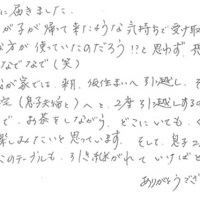 に届きました。
が子が帰って来たような気持ちで受け取
な方が使っていたのだろう!?と思わず、
なでなでなで(笑)
が家では、 、仮住まいへ引っ越し、そ
(息子夫婦と)へと、2度引っ越しする
で、お茶をしながら、どこにいても、く
楽しみたいと思っています。そして、息子
このテーブルも、引き継がれていけばと
ありがとうござ